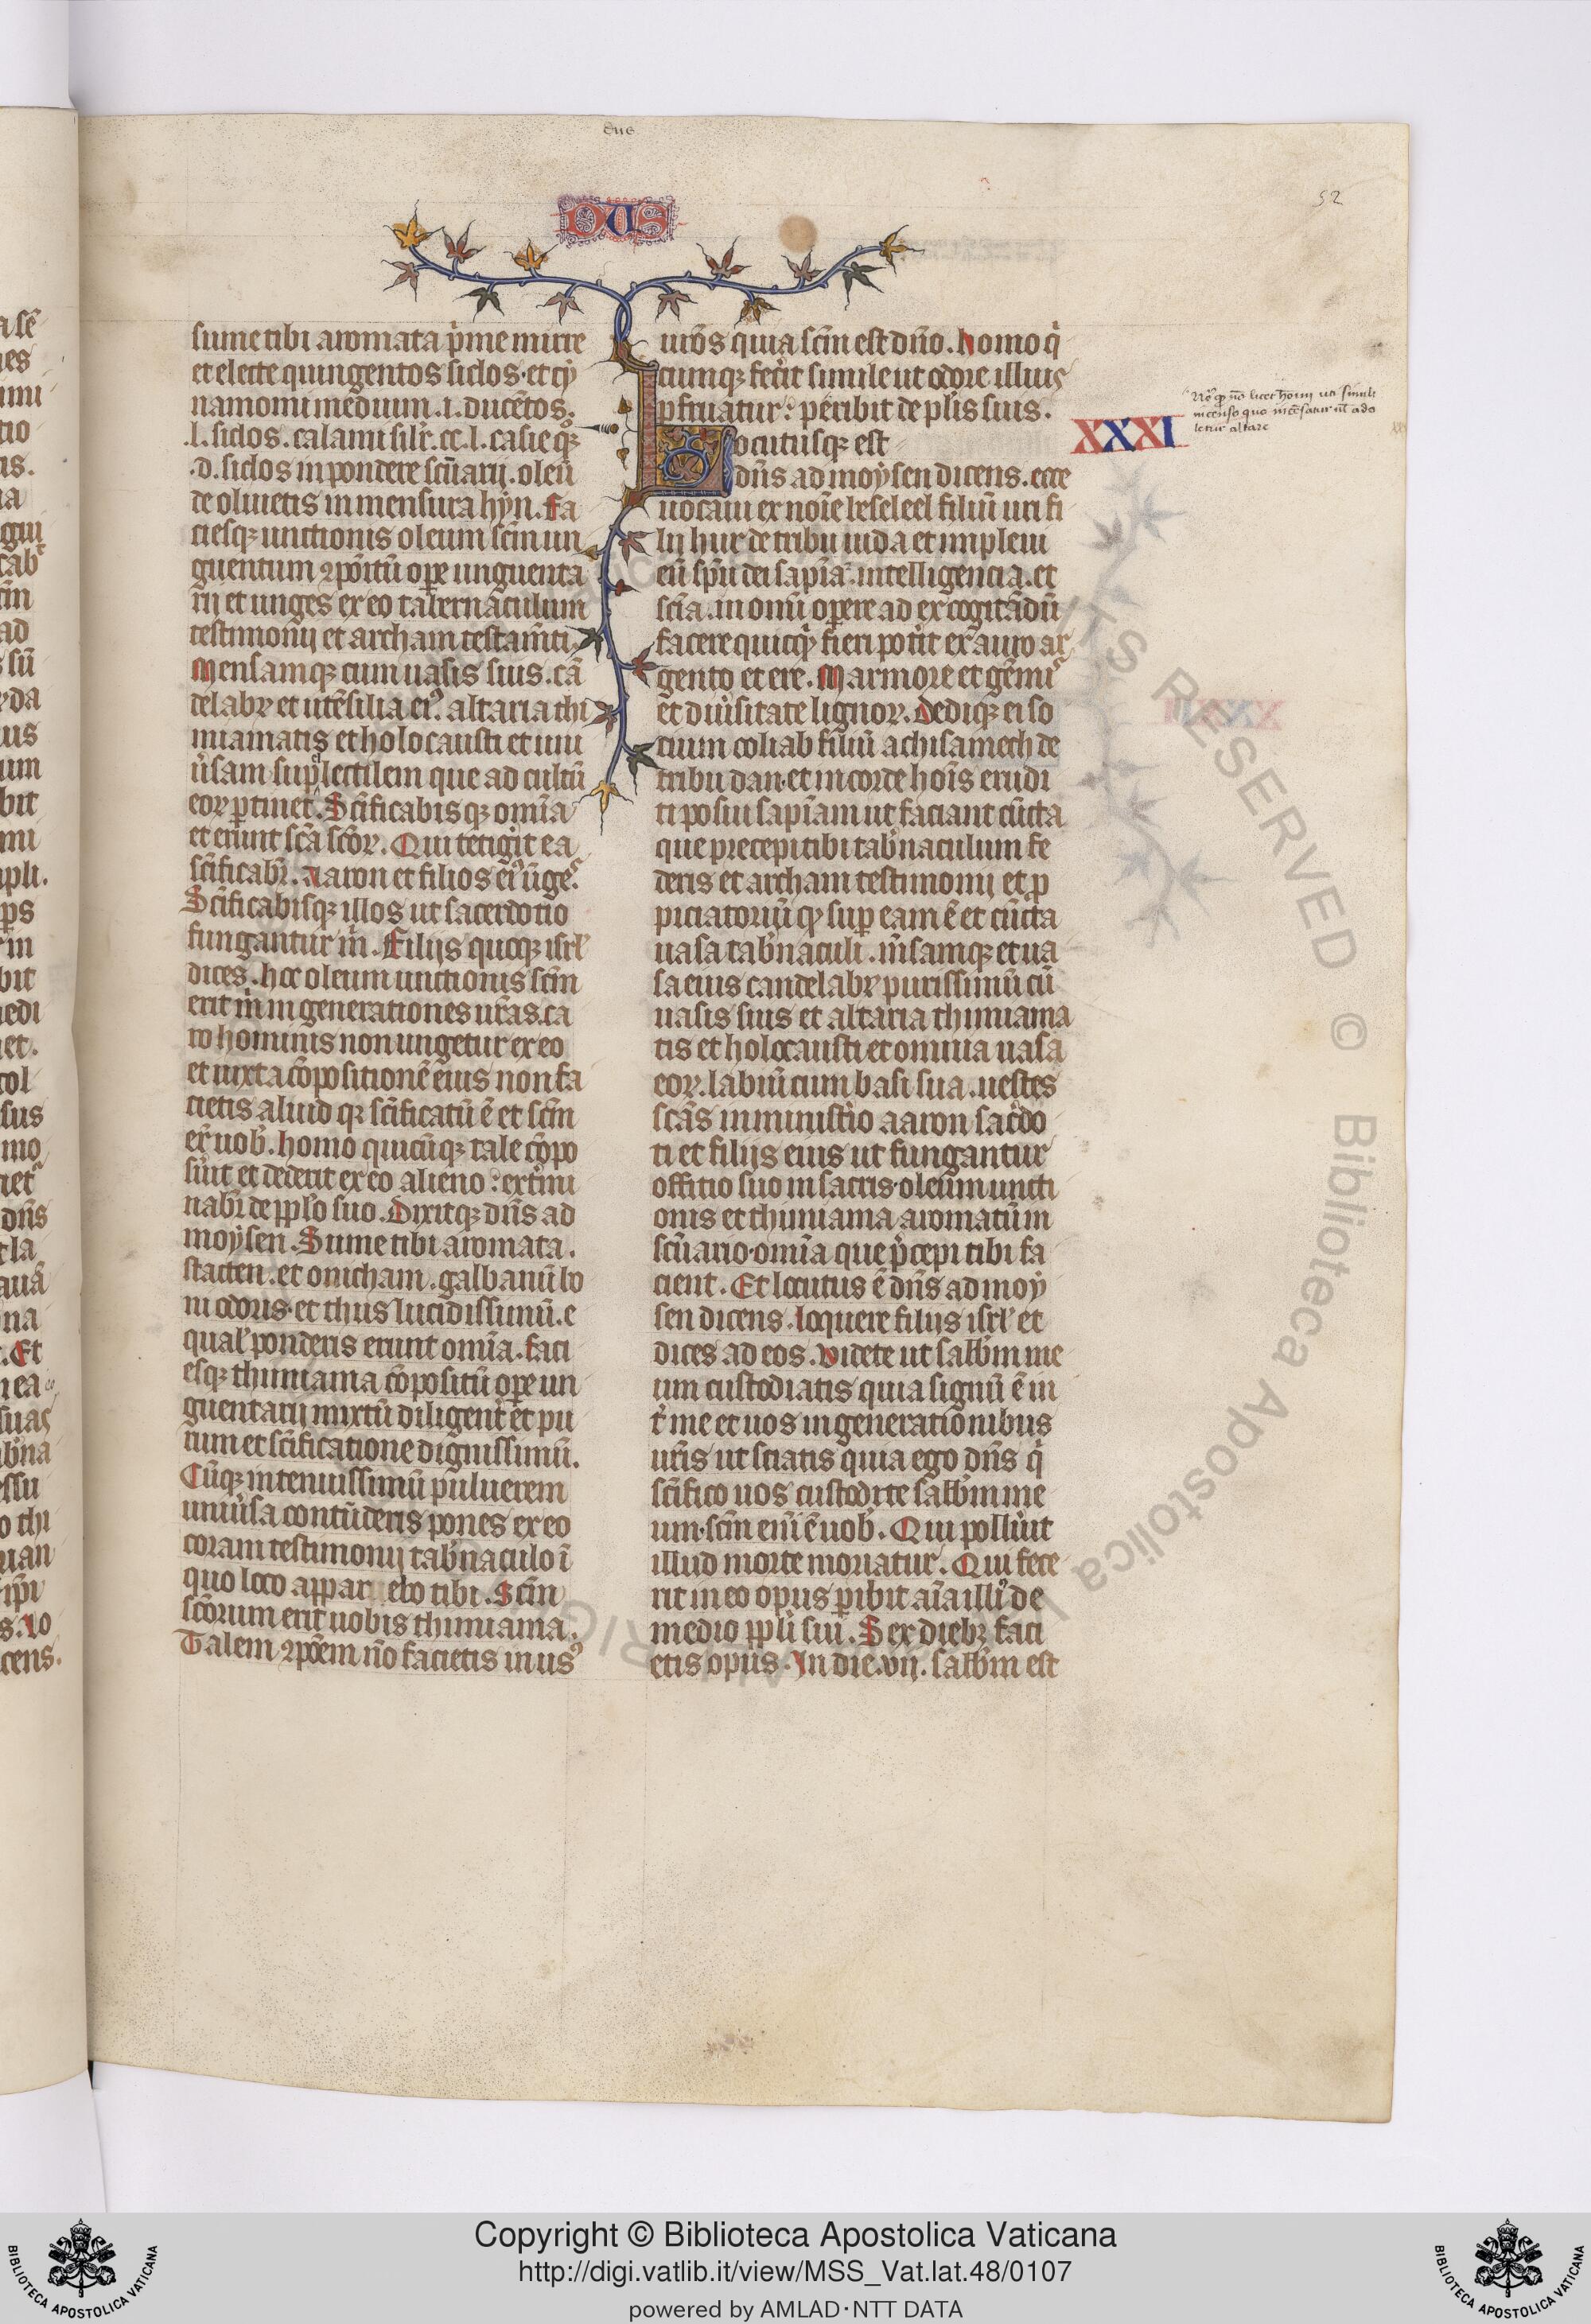 dus
52
DUS
sume tibi aromata p̾me mirre
et electe quingentos siclos. et cy
namomi medium .i. ducētos.
.l. siclos. calami silr̄. cc.l. casie qͦꝫ
.d. siclos in pondere scūarij. oleū
de oliuetis in mensura hyn. Fa
ciesqꝫ unctionis oleum scm̄ un
guentum ꝯpōitū oꝑe unguenta
rij et unges ex eo tabernāculum
testimonij et archam testam̄ti.
Mensamqꝫ cum uasis suis. cā
delabꝝ et utēsilia eiꝰ. altaria thi
miamatis et holocausti et uni
u̾sam supellectilem que ad cultū
eoꝝ ꝑtinet. Scīficabisqꝫ omīa
et erunt scā scōꝝ. Qui tetigit ea
scīficabr̄. Aaron et filios eiꝰ ūgeˢ.
Scīficabisqꝫ illos ut sacerdotio
fungantur m̾. Filijs quoqꝫ isrl̾
dices. hoc oleum unctionis scm̄
erit m̾ in generationes ur̄as. ca
ro hominis non ungetur ex eo
et iuxta cōpositionē eius non fa
cietis aliud qꝛ scīficatū ē et scm̄
er̾ uob̾. Homo quicūqꝫ tale cōpo
su̾it et dederit ex eo alieno: ext̾mi
nabr̄ de ppl̾o suo. Dixitqꝫ dn̄s ad
moysen. Sume tibi aromata.
stacten. et onicham. galbanū bo
ni odoris. et thus lucidissimū. e
qual̾ ponderis erunt omīa. faci
esqꝫ thimiama cōpositū oꝑe un
guentarij mixtū diligent̾ et pu
rum et scīficatione dignissimū.
Cūqꝫ in tenuissimū puluerem
uniu̾sa contūderis pones ex eo
coram testimonij tab̾naculo ī
quo loco appar ebo tibi. Scm̄
scōrum erit uobis thimiama.
Talem ꝯpōem nō facietis in usꝰ
ur̄os quia scm̄ est dn̄o. Homo q̾
cumqꝫ fec̾it simile ut odore illius
ꝑfruatur: peribit de pl̾is suis.
Locutusqꝫ est
XXXI
dn̄s ad moysen dicens. ecce
uocaui ex noīe beseleel filiū uri fi
lij hur de tribu iuda et impleui
eū spū dei sapīa. intelligencia. et
scīa. in omī opere ad excogitādū
facere quicqͥ̄d fieri pot̾it ex auro ar
gento et ere. Marmore et gēmiˢ
et diu̾sitate lignoꝝ. Dediqꝫ ei so
cium ooliab filiū achisamech de
tribu dan. et in corde hoīs erudi
ti posui sapīam ut faciant cūcta
que precepi tibi tab̾naculum fe
deris et archam testimonij et ꝓ
piciatoriū qꝫ suꝑ eam ē et cūcta
uasa tab̾naculi. m̄samqꝫ et ua
sa eius candelabꝝ purissimū cū
uasis suis et altaria thimiama
tis et holocausti et omnia uasa
eoꝝ. labiū cum basi sua. uestes
scās in minist̾io aaron sac̾do
ti et filijs eius ut fungantur
offitio suo in sacris. oleum uncti
onis et thimiama aromatū in
scūario. omīa que p̾cepi tibi fa
cient. Et locutus ē dn̄s ad moy
sen dicens. loquere filijs isrl̾ et
dices ad eos. Videte ut sabb̄m me
um custodiatis quia signū ē in
t̾ me et uos in generationibus
ur̄is ut sciatis quia ego dn̄s q̾
scīfico uos custodite sabb̄m me
um. scm̄ enī ē uob̾. Qui pollu̾it
illud morte moriatur. Qui fece
rit in eo opus ꝑibit aīa illiꝰ de
medio ppl̾i sui. Sex diebꝫ faci
etis opus. In die .vij. sabb̄m est
Nō qꝫ nō licet homī uti simili
incenso quo incēsatur ul̄ ado
letur altare
ALL RIGHTS RESERVED © Biblioteca Apostolica Vaticana
Copyright © Biblioteca Apostolica Vaticana
http://digi.vatlib.it/view/MSS_Vat.lat.48/0107
powered by AMLAD·NTT DATA
BIBLIOTECA APOSTOLICA VATICANA
BIBLIOTECA APOSTOLICA VATICANA